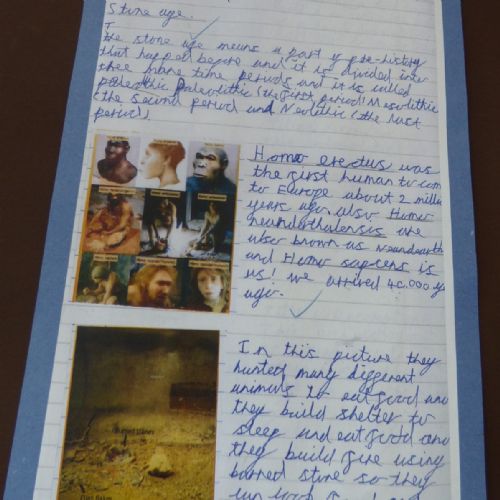 Stone age.
The stone age means a part of pre-history
that happed before and it is divided into
three mane time periods and it is called
paleolthic Paleolithic (the first period) Mesolithic
(the second period and Neolithic (the last
period).
Homo erectus was
the first human to com
to Europe about 2 milli
years ago. also Homo
neanderthalensis are
also known as Neanderth
and Homo sapiens is
us! we arrived 40,000 y
ago.
In this picture they
hunted many different
animals to eat good and
they build shelter to
sleep and eat good and
they build fire using
burned stone so they
can
Burned bones